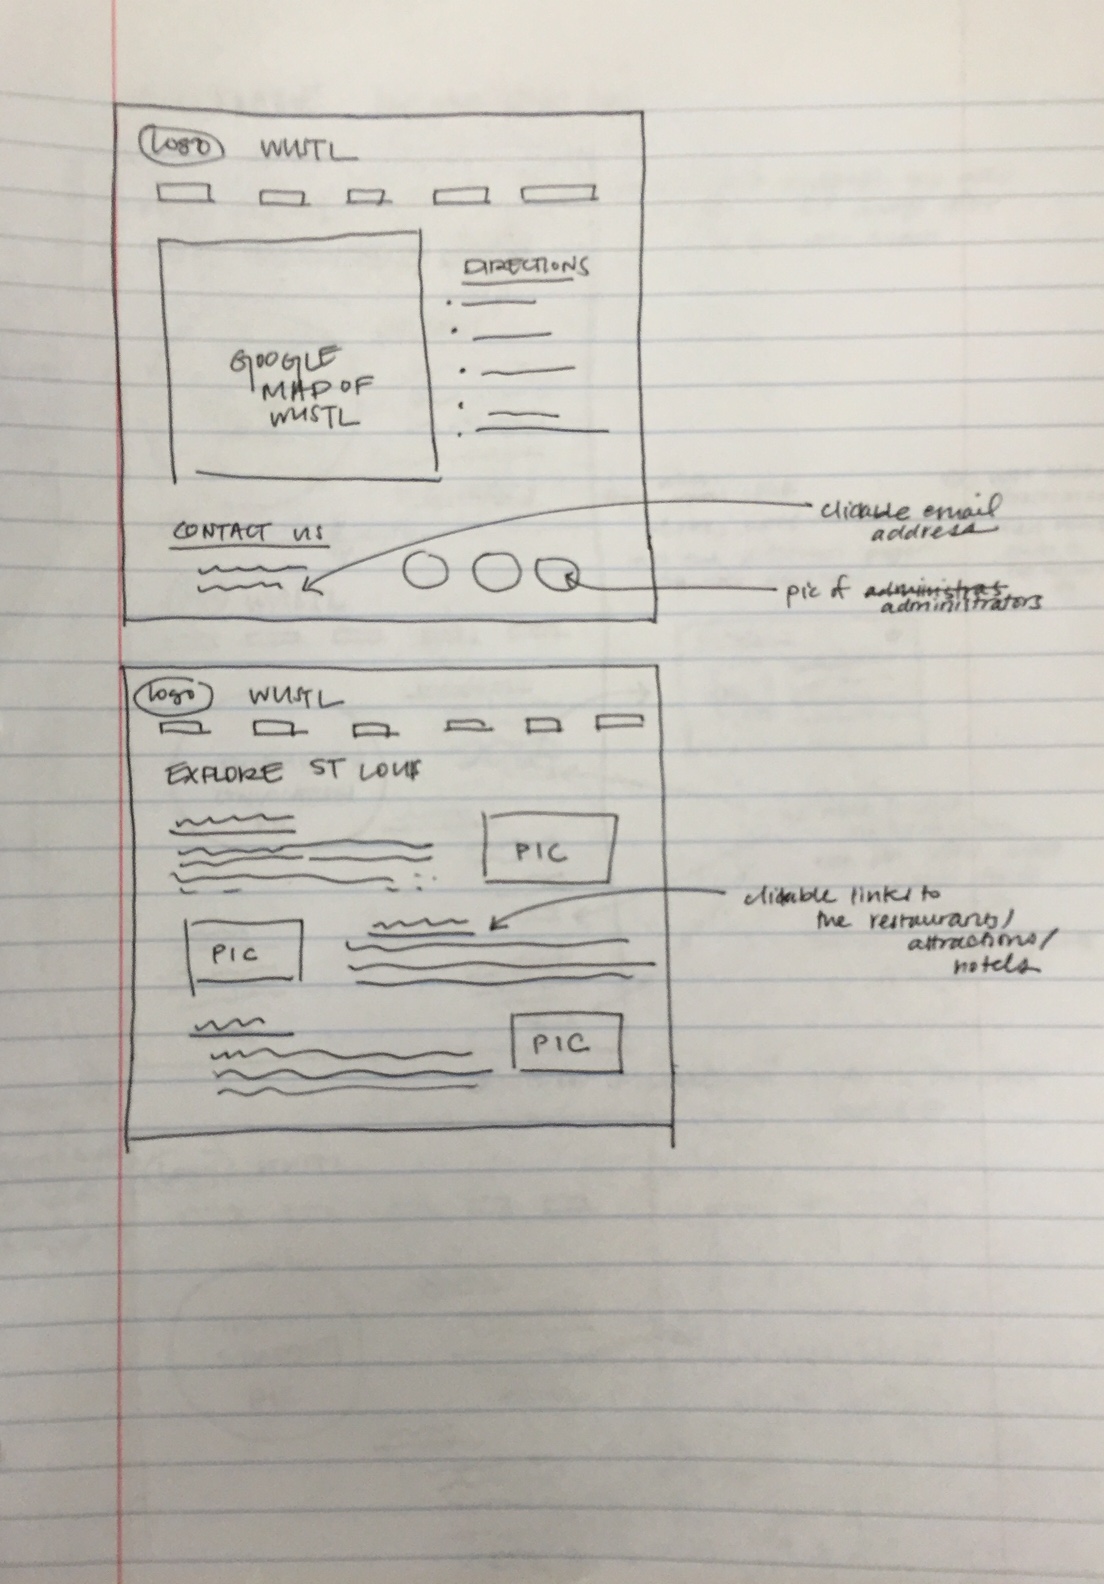 logo WUSTL
DIRECTIONS
GOOGLE
MAP OF
WUSTL
CONTACT US
clickable email
address
pic of administras
administrators
logo WUSTL
EXPLORE ST LOUIS
PIC
clickable links to
the restaurants/
attractions/
hotels
PIC
PIC